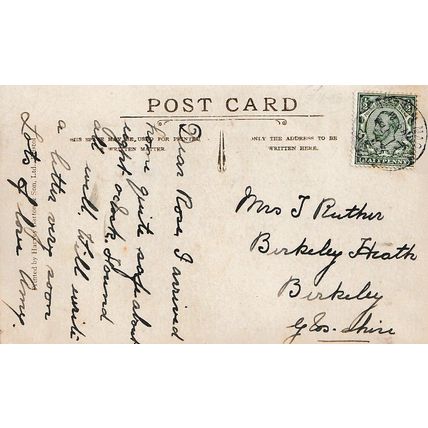 POST CARD
THIS SPACE MAY BE USED FOR PRINTED
OR WRITTEN MATTER.
ONLY THE ADDRESS TO BE
WRITTEN HERE.
HALFPENNY
Dear Rose, I arrived
home quite safe about
eight oclock. Found
all well. Will write
a letter very soon
Lots of love Amy.
Mrs J Ruther
Berkeley Heath
Berkeley
Glos-shire
Printed by
Son, Ltd.